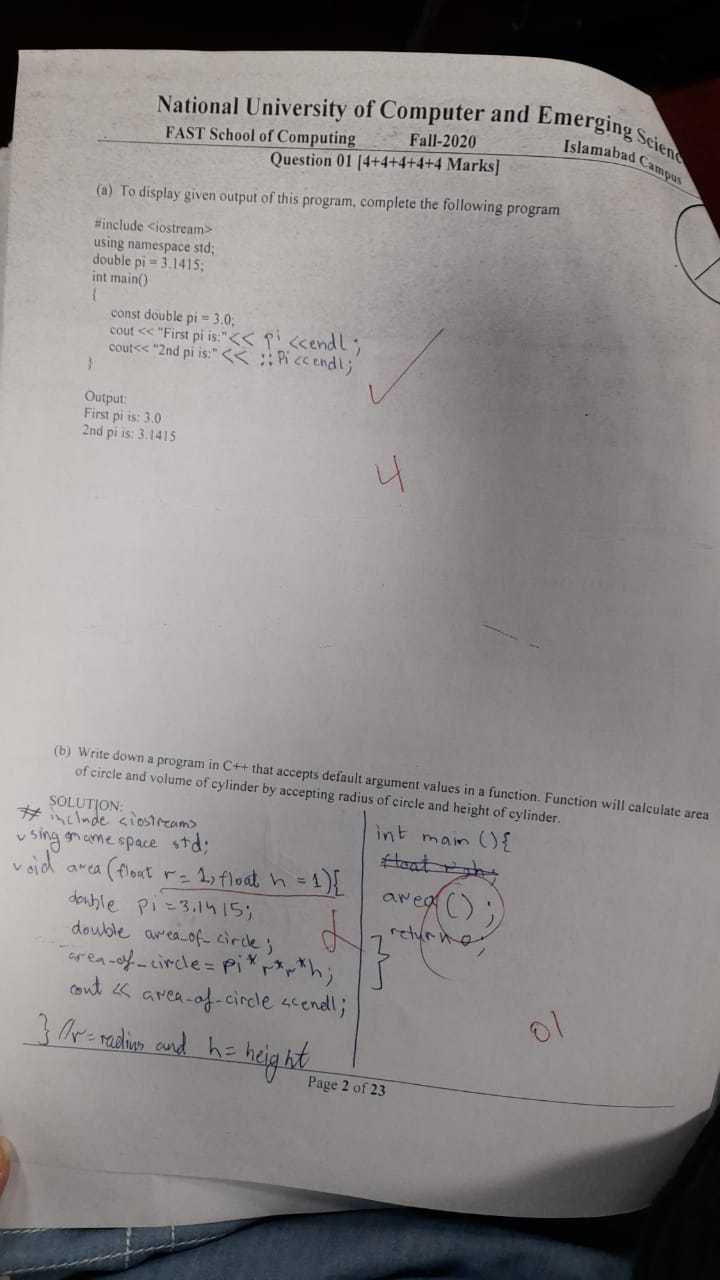 National University of Computer and Emerging Scienc
FAST School of Computing Fall-2020 Islamabad Campus
Question 01 [4+4+4+4+4 Marks]
(a) To display given output of this program, complete the following program
#include <iostream>
using namespace std;
double pi = 3.1415;
int main()
{
const double pi = 3.0;
cout << "First pi is:"<< pi <<endl;
cout<< "2nd pi is:" << ::Pi << endl;
}
Output:
First pi is: 3.0
2nd pi is: 3.1415
4
(b) Write down a program in C++ that accepts default argument values in a function. Function will calculate area
of circle and volume of cylinder by accepting radius of circle and height of cylinder.
SOLUTION:
# include <iostream>
using namespace std;
void area (float r = 1, float h = 1){
double pi = 3.1415;
double area-of-circle;
area-of-circle = pi*r*r*h;
cout << area-of-circle <<endl;
} //r = radius and h = height
int main () {
float r, h;
area();
return 0;
}
01
Page 2 of 23